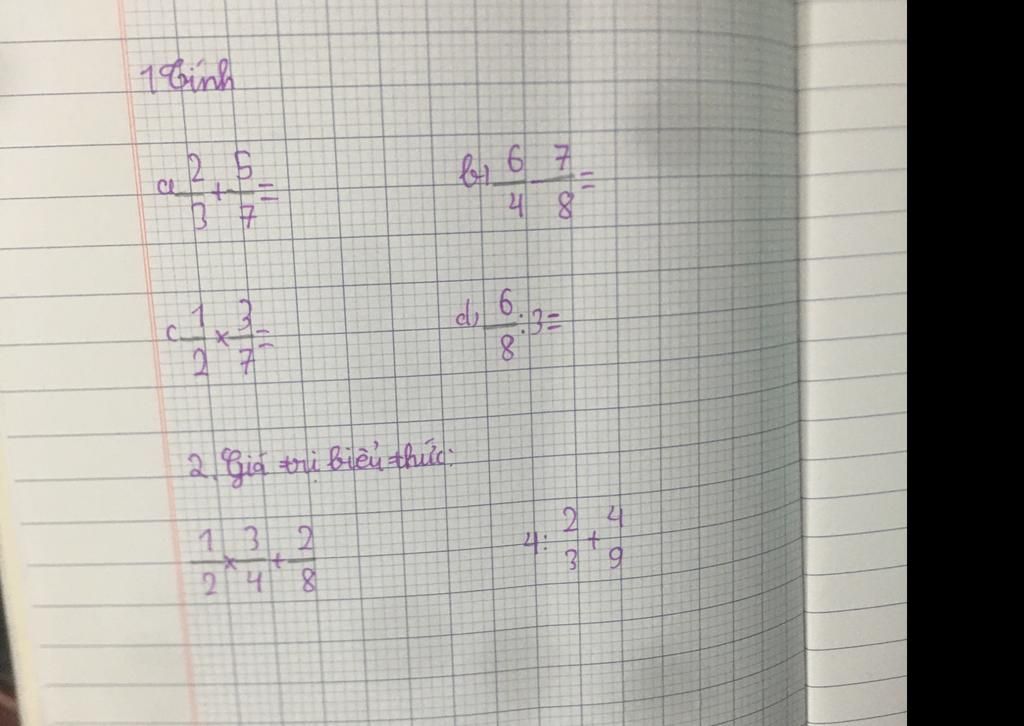 1 Tính
a 2/3 + 5/7 =
b) 6/4 - 7/8 =
c 1/2 × 3/7 =
d) 6/8 : 3 =
2. Giá trị biểu thức:
1/2 × 3/4 + 2/8
4 : 2/3 + 4/9